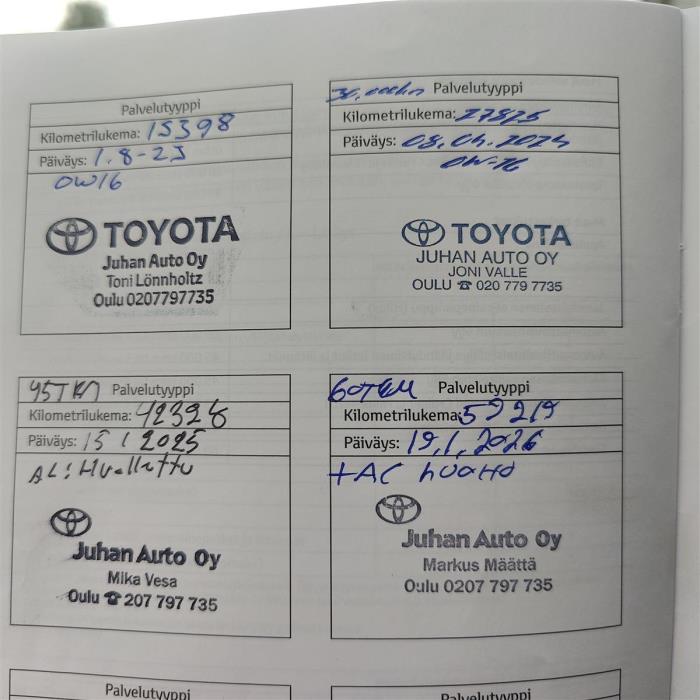 Palvelutyyppi
Kilometrilukema: 15398
Päiväys: 1.8-23
0W16
TOYOTA
Juhan Auto Oy
Toni Lönnholtz
Oulu 0207797735
Palvelutyyppi
Kilometrilukema: 27825
Päiväys: 08.04.2024
0W-16
TOYOTA
JUHAN AUTO OY
JONI VALLE
OULU ☎ 020 779 7735
45TKM Palvelutyyppi
Kilometrilukema: 42328
Päiväys: 15 1 2025
AC: Huollettu
Juhan Auto Oy
Mika Vesa
Oulu ☎ 207 797 735
60TKM Palvelutyyppi
Kilometrilukema: 59219
Päiväys: 19.1.2026
+AC huolto
Juhan Auto Oy
Markus Määttä
Oulu 0207 797 735
Palvelutyyppi
Palvelutyyppi